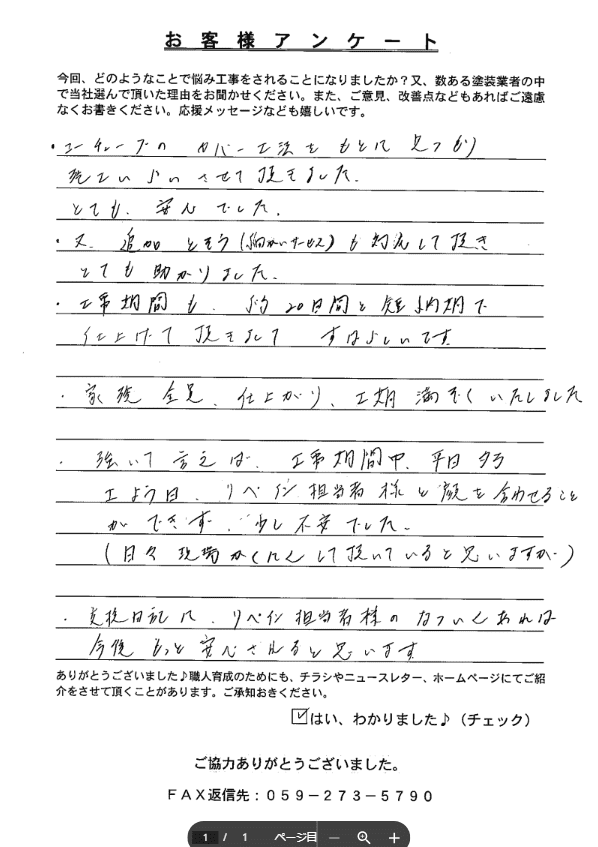 お客様アンケート
今回、どのようなことで悩み工事をされることになりましたか？又、数ある塗装業者の中
で当社選んで頂いた理由をお聞かせください。また、ご意見、改善点などもあればご遠慮
なくお書きください。応援メッセージなども嬉しいです。
・ユーチューブの カバー工法をもとに見つかり
施工い させて頂きました。
とても、安心でした。
・又、追加とそう(細かいサービス)も対応して頂き
とても助かりました。
・工事期間も、約20日間と短納期で
仕上げて頂きまして すばらしいです
・家族全員、仕上がり、工期 満ぞくいたしました
・強いて言えば、工事期間中、平日 夕方
土よう日、リペイン担当者様と顔を合わせること
ができず、少し不安でした。
(日々 現場かくにんして頂いていると思いますが)
・交換日記に、リペイン担当者様のなついんあれば
今後もっと安心されると思います
ありがとうございました♪職人育成のためにも、チラシやニュースレター、ホームページにてご紹
介をさせて頂くことがあります。ご承知おきください。
☑はい、わかりました♪（チェック）
ご協力ありがとうございました。
ＦＡＸ返信先：０５９－２７３－５７９０
1 / 1 ページ目 － ＋